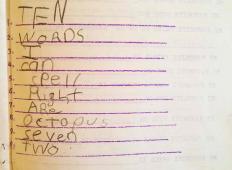 TEN
2. WORDS
3. I
4. can
5. spell
6. Right
7. ARe
8. Octopus
9. seven
TWO